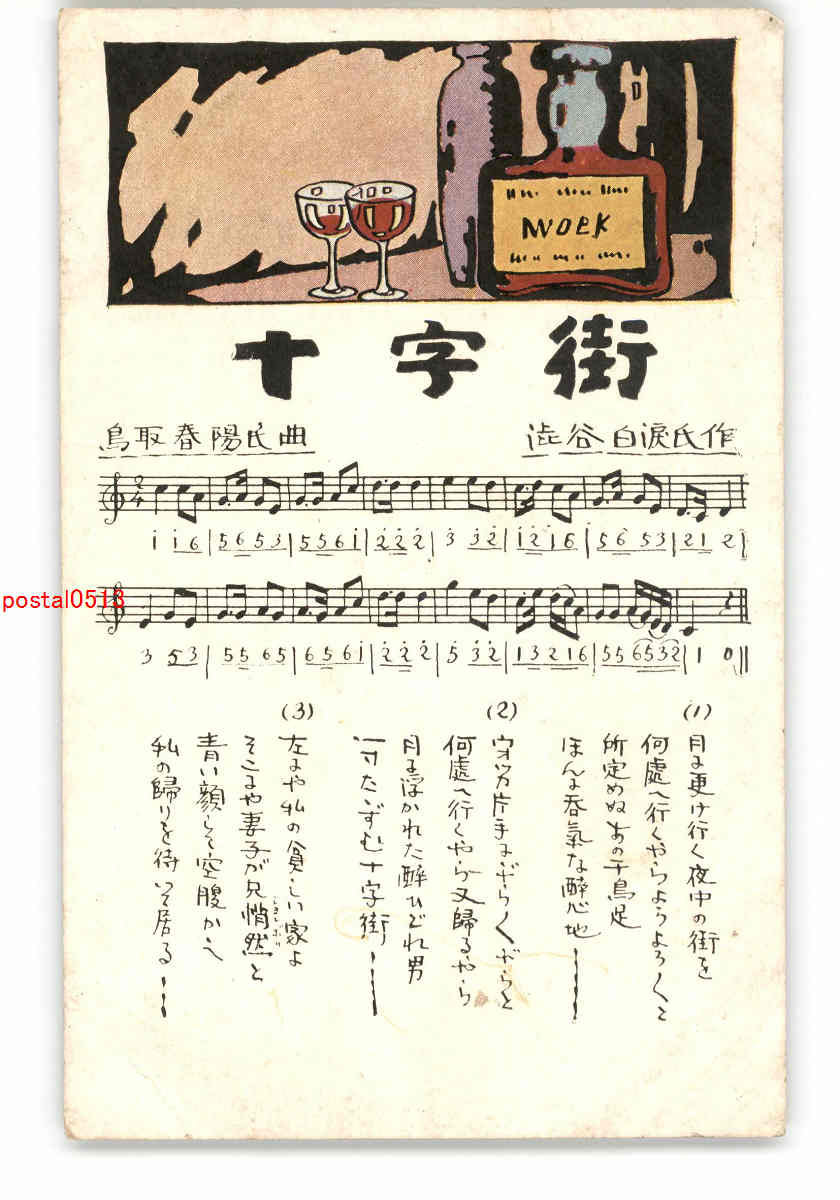 NOEK
十字街
鳥取春陽氏曲
澁谷白涙氏作
2/4
i i6 | 5653 | 556i | 222 | 3 32 | i2i6 | 56 53 | 21 2
3 53 | 55 65 | 656i | 222 | 5 32 | 13216 | 556532 | 1 0
(1)
月に更け行く夜中の街を
何處へ行くやら
所定めぬあの千鳥足
ほんに呑氣な醉心地――
(2)
片手にぶら〱ぶらと
何處へ行くやら又歸るやら
月に浮かれた醉ひどれ男
一寸たゝずむ十字街――
(3)
左にや私の貧しい家よ
そこにや妻子が只悄然と
しよんぼり
青い顔して空腹かゝへ
私の歸りを待つて居る――
postal0513